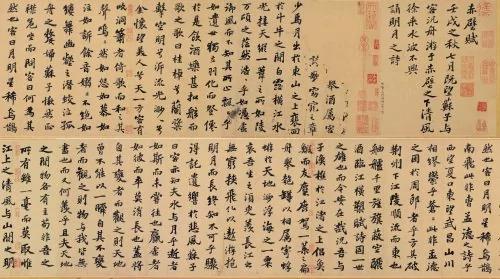 赤壁賦
壬戌之秋七月既望蘇子與
客泛舟游於赤壁之下清風
徐來水波不興
誦明月之詩
舉酒屬客
歌窈窕之章
少焉月出於東山之上裴回
於斗牛之間白露橫江水
光接天縱一葦之所如陵
萬頃之茫然浩乎如憑虛
御風而不知其所止飄飄乎
如遺世獨立羽化而登僊
於是飲酒樂甚扣舷而
歌之歌曰桂棹兮蘭槳
擊空明兮泝流光渺渺兮
余懷望美人兮天一方客有
吹洞簫者倚歌而和之其
聲嗚嗚然如怨如慕如
泣如訴餘音嫋嫋不絕如
縷舞幽壑之潛蛟泣孤
舟之嫠婦蘇子愀然正
襟危坐而問客曰何為其
然也客曰月明星稀烏鵲
南飛此非孟德之詩乎
西望夏口東望武昌山川
相繆鬱乎蒼蒼此非孟德
之困於周郎者乎方其破
荊州下江陵順流而東也
舳艫千里旌旗蔽空釃
酒臨江橫槊賦詩固一世
之雄也而今安在哉況吾與
子漁樵於江渚之上侶魚
蝦而友麋鹿駕一葉之扁
舟舉匏尊以相屬寄蜉
蝣於天地渺浮海之一粟
哀吾生之須臾羨長江之
無窮挾飛仙以遨游抱
明月而長終知不可乎驟
得託遺響於悲風蘇子
曰客亦知夫水與月乎逝者
如斯而未嘗往也贏虛者
如彼而卒莫消長也蓋將
自其變者而觀之則天地
曾不能以一瞬自其不變
者而觀之則物與我皆無
盡也而又何羨乎且夫天地
之間物各有主苟非吾之
所有雖一毫而莫取惟
江上之清風與山間之明